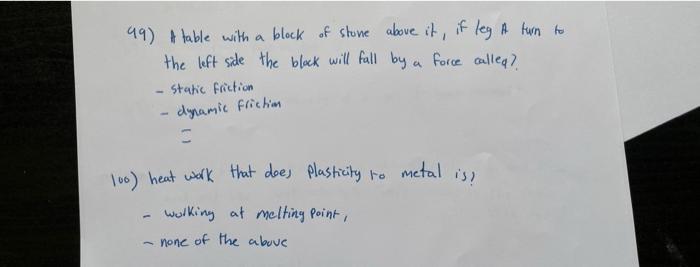 99) A table with a block of stone above it, if leg A turn to
the left side the block will fall by a force called?
- static friction
- dynamic friction
=
100) heat work that does plasticity to metal is?
- working at melting point,
- none of the above